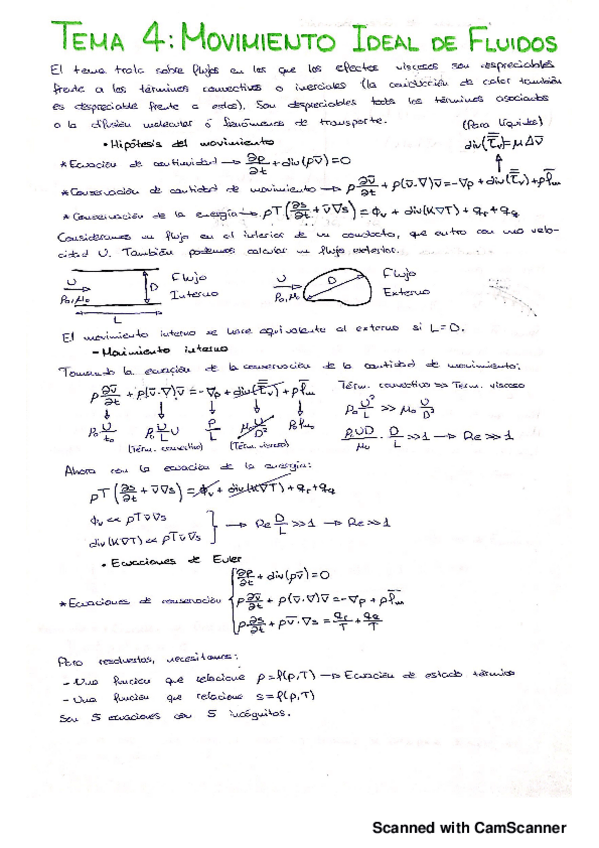 TEMA 4: MOVIMIENTO IDEAL DE FLUIDOS
El tema trata sobre flujos en los que los efectos viscosos son despreciables
frente a los términos convectivos o inerciales (la conducción de calor también
es despreciable frente a estos). Son despreciables todos los términos asociados
a la difusión molecular ó fenómenos de transporte.
(Para líquidos)
• Hipótesis del movimiento
div(τ̿v) = μΔv̄
* Ecuación de continuidad → ∂ρ/∂t + div(ρv̄) = 0
* Conservación de cantidad de movimiento → ρ ∂v̄/∂t + ρ(v̄·∇)v̄ = -∇p + div(τ̿v) + ρf̄m
* Conservación de la energía → ρT(∂s/∂t + v̄∇s) = Φv + div(K∇T) + qr + qq
Consideramos un flujo en el interior de un conducto, que entra con una velo-
cidad U. También podemos calcular un flujo exterior.
U D Flujo U D Flujo
ρo, μo Interno ρo, μo Externo
L
El movimiento interno se hace equivalente al externo si L=D.
- Movimiento interno
Tomando la ecuación de la conservación de la cantidad de movimiento:
ρ ∂v̄/∂t + ρ(v̄·∇)v̄ = -∇p + div(τ̿v) + ρf̄m Térm. convectivo >> Term. viscoso
ρo U/to ρo U/L U P/L μo U/D² ρo fmo ρo U²/L >> μo U/D²
(Térm. convectivo) (Térm. viscoso) ρoUD/μo · D/L >> 1 → Re >> 1
Ahora con la ecuación de la energía:
ρT(∂s/∂t + v̄∇s) = Φv + div(K∇T) + qr + qq
Φv << ρTv̄∇s
→ Re D/L >> 1 → Re >> 1
div(K∇T) << ρTv̄∇s
• Ecuaciones de Euler
∂ρ/∂t + div(ρv̄) = 0
* Ecuaciones de conservación ρ ∂v̄/∂t + ρ(v̄·∇)v̄ = -∇p + ρf̄m
ρ ∂s/∂t + ρv̄·∇s = qr/T + qq/T
Para resolverlas, necesitamos:
- Una función que relacione ρ=f(p,T) → Ecuación de estado térmico
- Una función que relacione s=f(p,T)
Son 5 ecuaciones con 5 incógnitas.
Scanned with CamScanner